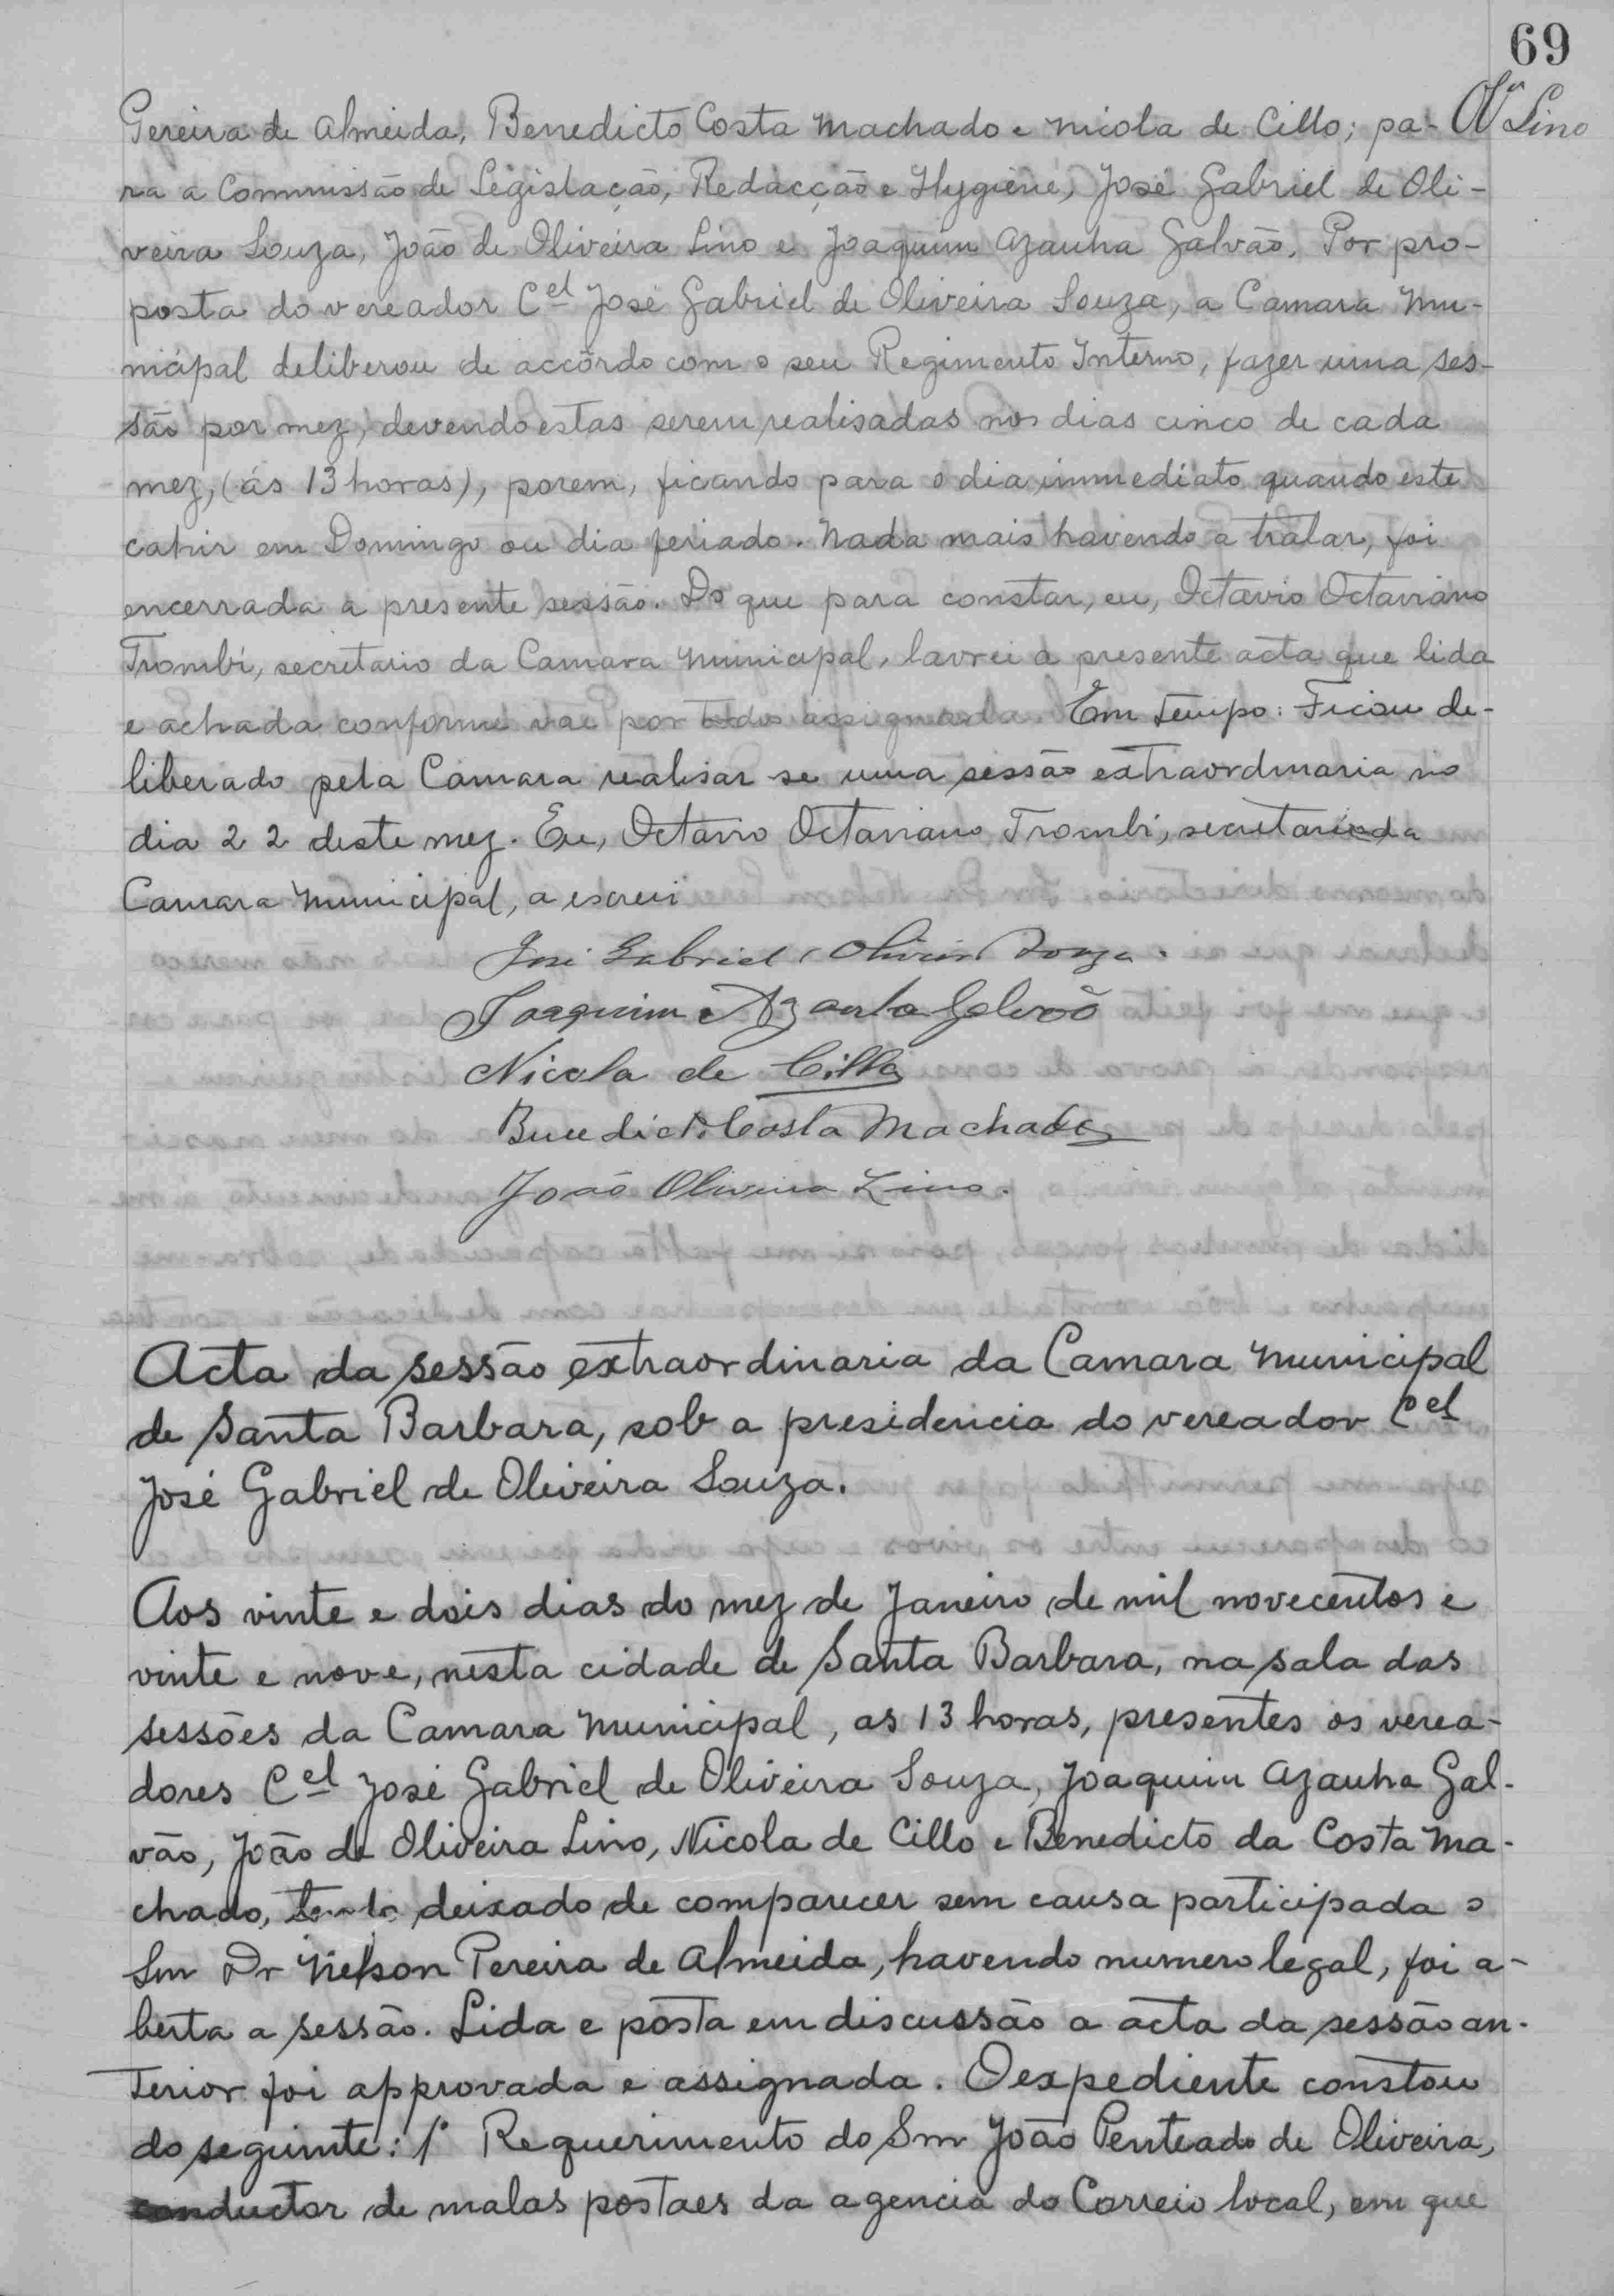 69
Lino
Pereira de Almeida, Benedicto Costa Machado e Nicola de Cillo; pa-
ra a Commissão de Legislação, Redacção e Hygiene, José Gabriel de Oli-
veira Souza, João de Oliveira Lino e Joaquim Azanha Galvão. Por pro-
posta do vereador Cel José Gabriel de Oliveira Souza, a Camara Mu-
nicipal deliberou de accôrdo com o seu Regimento Interno, fazer uma ses-
são por mez, devendo estas serem realisadas nos dias cinco de cada
mez, (ás 13 horas), porem, ficando para o dia immediato quando este
cahir em Domingo ou dia feriado. Nada mais havendo a tratar, foi
encerrada a presente sessão. Do que para constar, eu, Octavio Octaviano
Trombi, secretario da Camara Municipal, lavrei a presente acta que lida
e achada conforme vae por todos assignada. Em tempo: Ficou de-
liberado pela Camara realisar se uma sessão extraordinaria no
dia 22 deste mez. Eu, Octavio Octaviano Trombi, secretario da
Camara Municipal, a escrevi
José Gabriel Oliveira Souza.
Joaquim Azanha Galvão
Nicola de Cillo
Benedicto Costa Machado
João Oliveira Lino.
Acta da sessão extraordinaria da Camara Municipal
de Santa Barbara, sob a presidencia do vereador Cel
José Gabriel de Oliveira Souza.
Aos vinte e dois dias do mez de Janeiro de mil novecentos e
vinte e nove, nesta cidade de Santa Barbara, na sala das
sessões da Camara Municipal, as 13 horas, presentes os verea-
dores Cel José Gabriel de Oliveira Souza, Joaquim Azanha Gal-
vão, João de Oliveira Lino, Nicola de Cillo e Benedicto da Costa Ma-
chado, tendo deixado de comparecer sem causa participada o
Snr Dr Nelson Pereira de Almeida, havendo numero legal, foi a-
berta a sessão. Lida e posta em discussão a acta da sessão an-
terior foi approvada e assignada. O expediente constou
do seguinte: 1º Requerimento do Snr João Penteado de Oliveira,
conductor de malas postaes da agencia do Correio local, em que